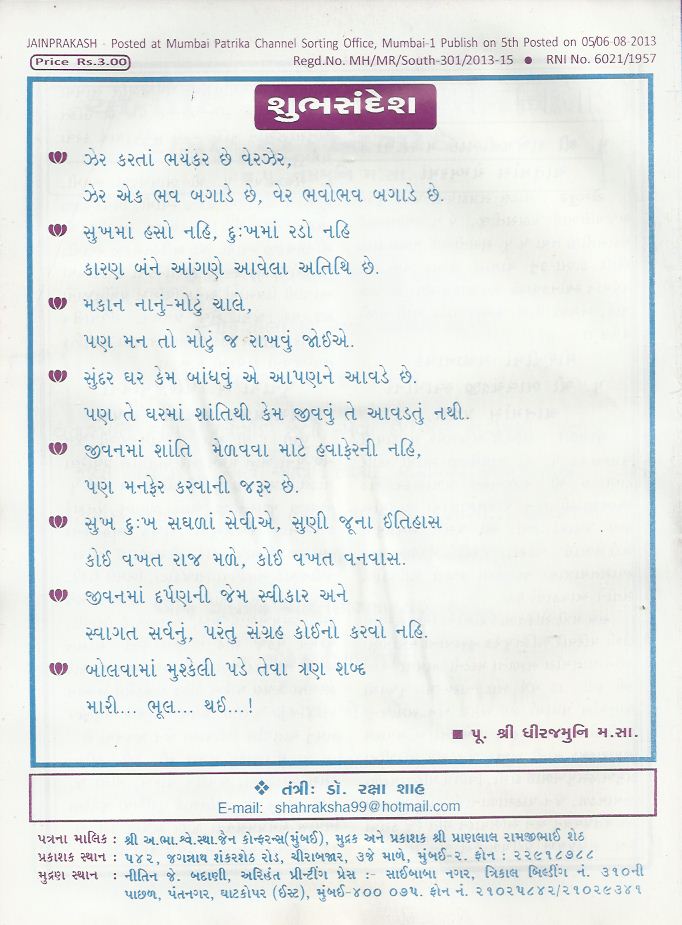 JAINPRAKASH - Posted at Mumbai Patrika Channel Sorting Office, Mumbai-1 Publish on 5th Posted on 05/06-08-2013
Price Rs.3.00 Regd.No. MH/MR/South-301/2013-15 ● RNI No. 6021/1957
શુભસંદેશ
ઝેર કરતાં ભયંકર છે વેરઝેર,
ઝેર એક ભવ બગાડે છે, વેર ભવોભવ બગાડે છે.
સુખમાં હસો નહિ, દુઃખમાં રડો નહિ
કારણ બંને આંગણે આવેલા અતિથિ છે.
મકાન નાનું-મોટું ચાલે,
પણ મન તો મોટું જ રાખવું જોઈએ.
સુંદર ઘર કેમ બાંધવું એ આપણને આવડે છે.
પણ તે ઘરમાં શાંતિથી કેમ જીવવું તે આવડતું નથી.
જીવનમાં શાંતિ મેળવવા માટે હવાફેરની નહિ,
પણ મનફેર કરવાની જરૂર છે.
સુખ દુઃખ સઘળાં સેવીએ, સુણી જૂના ઈતિહાસ
કોઈ વખત રાજ મળે, કોઈ વખત વનવાસ.
જીવનમાં દર્પણની જેમ સ્વીકાર અને
સ્વાગત સર્વનું, પરંતુ સંગ્રહ કોઈનો કરવો નહિ.
બોલવામાં મુશ્કેલી પડે તેવા ત્રણ શબ્દ
મારી... ભૂલ... થઈ...!
■ પૂ. શ્રી ધીરજમુનિ મ.સા.
❖ તંત્રીઃ ડૉ. રક્ષા શાહ
E-mail: shahraksha99@hotmail.com
પત્રના માલિક : શ્રી અ.ભા.શ્વે.સ્થા.જૈન કોન્ફરન્સ(મુંબઈ), મુદ્રક અને પ્રકાશક શ્રી પ્રાણલાલ રામજીભાઈ શેઠ
પ્રકાશક સ્થાન : ૫૪૨, જગન્નાથ શંકરશેઠ રોડ, ચીરાબજાર, ૩જે માળે, મુંબઈ-૨. ફોન : ૨૨૯૧૮૭૮૮
મુદ્રણ સ્થાન : નીતિન જે. બદાણી, અરિહંત પ્રીન્ટીંગ પ્રેસ :- સાઈબાબા નગર, ત્રિકાલ બિલ્ડીંગ નં. ૩૧૦ની
પાછળ, પંતનગર, ઘાટકોપર (ઈસ્ટ), મુંબઈ-૪૦૦ ૦૭૫. ફોન નં. ૨૧૦૨૫૮૪૨/૨૧૦૨૯૩૪૧